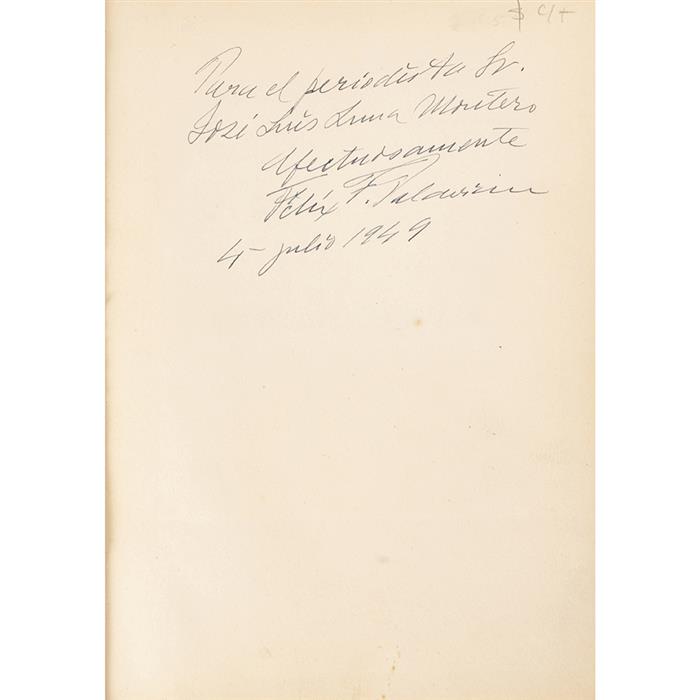 Para el periodista Sr.
José Luis Luna Montero
Afectuosamente
Félix F. Palavicini
4- julio 1949